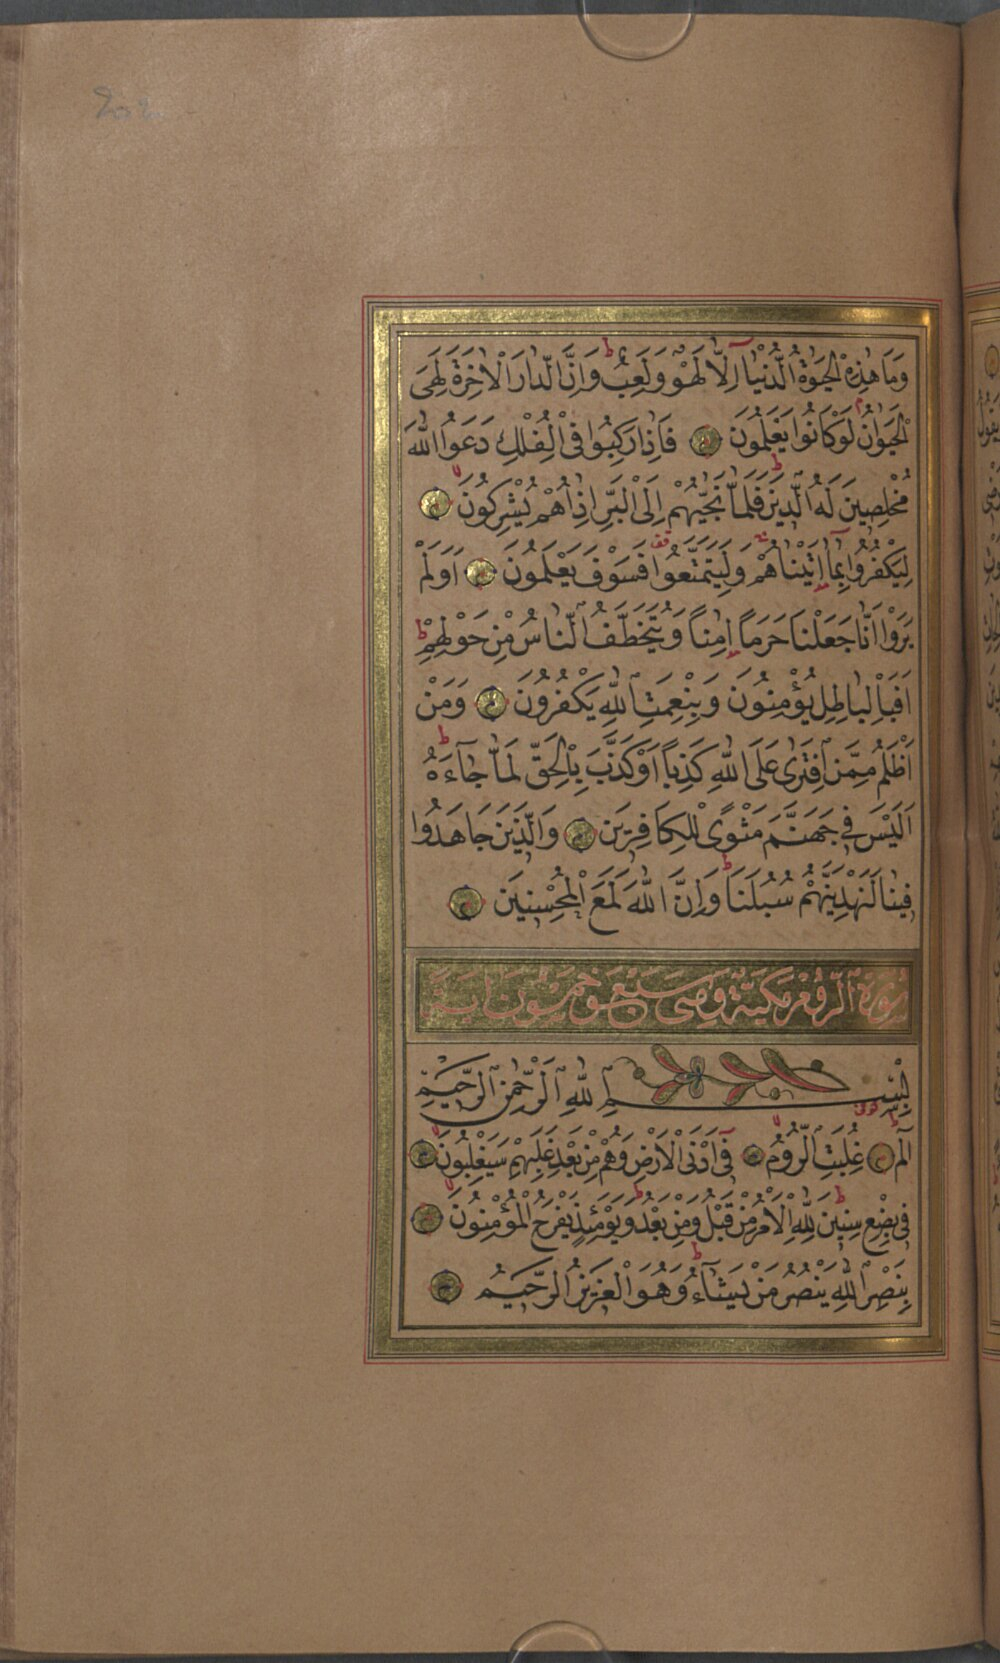 وَمَا هٰذِهِ الْحَيٰوةُ الدُّنْيَا اِلَّا لَهْوٌ وَلَعِبٌ ط وَاِنَّ الدَّارَ الْاٰخِرَةَ لَهِىَ
الْحَيَوَانُ م لَوْ كَانُوا يَعْلَمُونَ فَاِذَا رَكِبُوا فِى الْفُلْكِ دَعَوُا اللّٰهَ
مُخْلِصِينَ لَهُ الدِّينَ ط فَلَمَّا نَجّٰيهُمْ اِلَى الْبَرِّ اِذَا هُمْ يُشْرِكُونَ لا
لِيَكْفُرُوا بِمَا اٰتَيْنَاهُمْ وَلِيَتَمَتَّعُوا قف فَسَوْفَ يَعْلَمُونَ اَوَلَمْ
يَرَوْا اَنَّا جَعَلْنَا حَرَمًا اٰمِنًا وَيُتَخَطَّفُ النَّاسُ مِنْ حَوْلِهِمْ ط
اَفَبِالْبَاطِلِ يُؤْمِنُونَ وَبِنِعْمَتِ اللّٰهِ يَكْفُرُونَ وَمَنْ
اَظْلَمُ مِمَّنِ افْتَرٰى عَلَى اللّٰهِ كَذِبًا اَوْ كَذَّبَ بِالْحَقِّ لَمَّا جَاۤءَهُ ط
اَلَيْسَ فِى جَهَنَّمَ مَثْوًى لِلْكَافِرِينَ وَالَّذِينَ جَاهَدُوا
فِينَا لَنَهْدِيَنَّهُمْ سُبُلَنَا ط وَاِنَّ اللّٰهَ لَمَعَ الْمُحْسِنِينَ
سُورَةُ الرُّومِ مَكِّيَّةٌ وَهِىَ سَبْعٌ وَخَمْسُونَ اٰيَةً
بِسْمِ اللّٰهِ الرَّحْمٰنِ الرَّحِيمِ
الٓمٓ غُلِبَتِ الرُّومُ لا فِى اَدْنَى الْاَرْضِ وَهُمْ مِنْ بَعْدِ غَلَبِهِمْ سَيَغْلِبُونَ لا
فِى بِضْعِ سِنِينَ ط لِلّٰهِ الْاَمْرُ مِنْ قَبْلُ وَمِنْ بَعْدُ ط وَيَوْمَئِذٍ يَفْرَحُ الْمُؤْمِنُونَ لا
بِنَصْرِ اللّٰهِ يَنْصُرُ مَنْ يَشَاۤءُ ط وَهُوَ الْعَزِيزُ الرَّحِيمُ